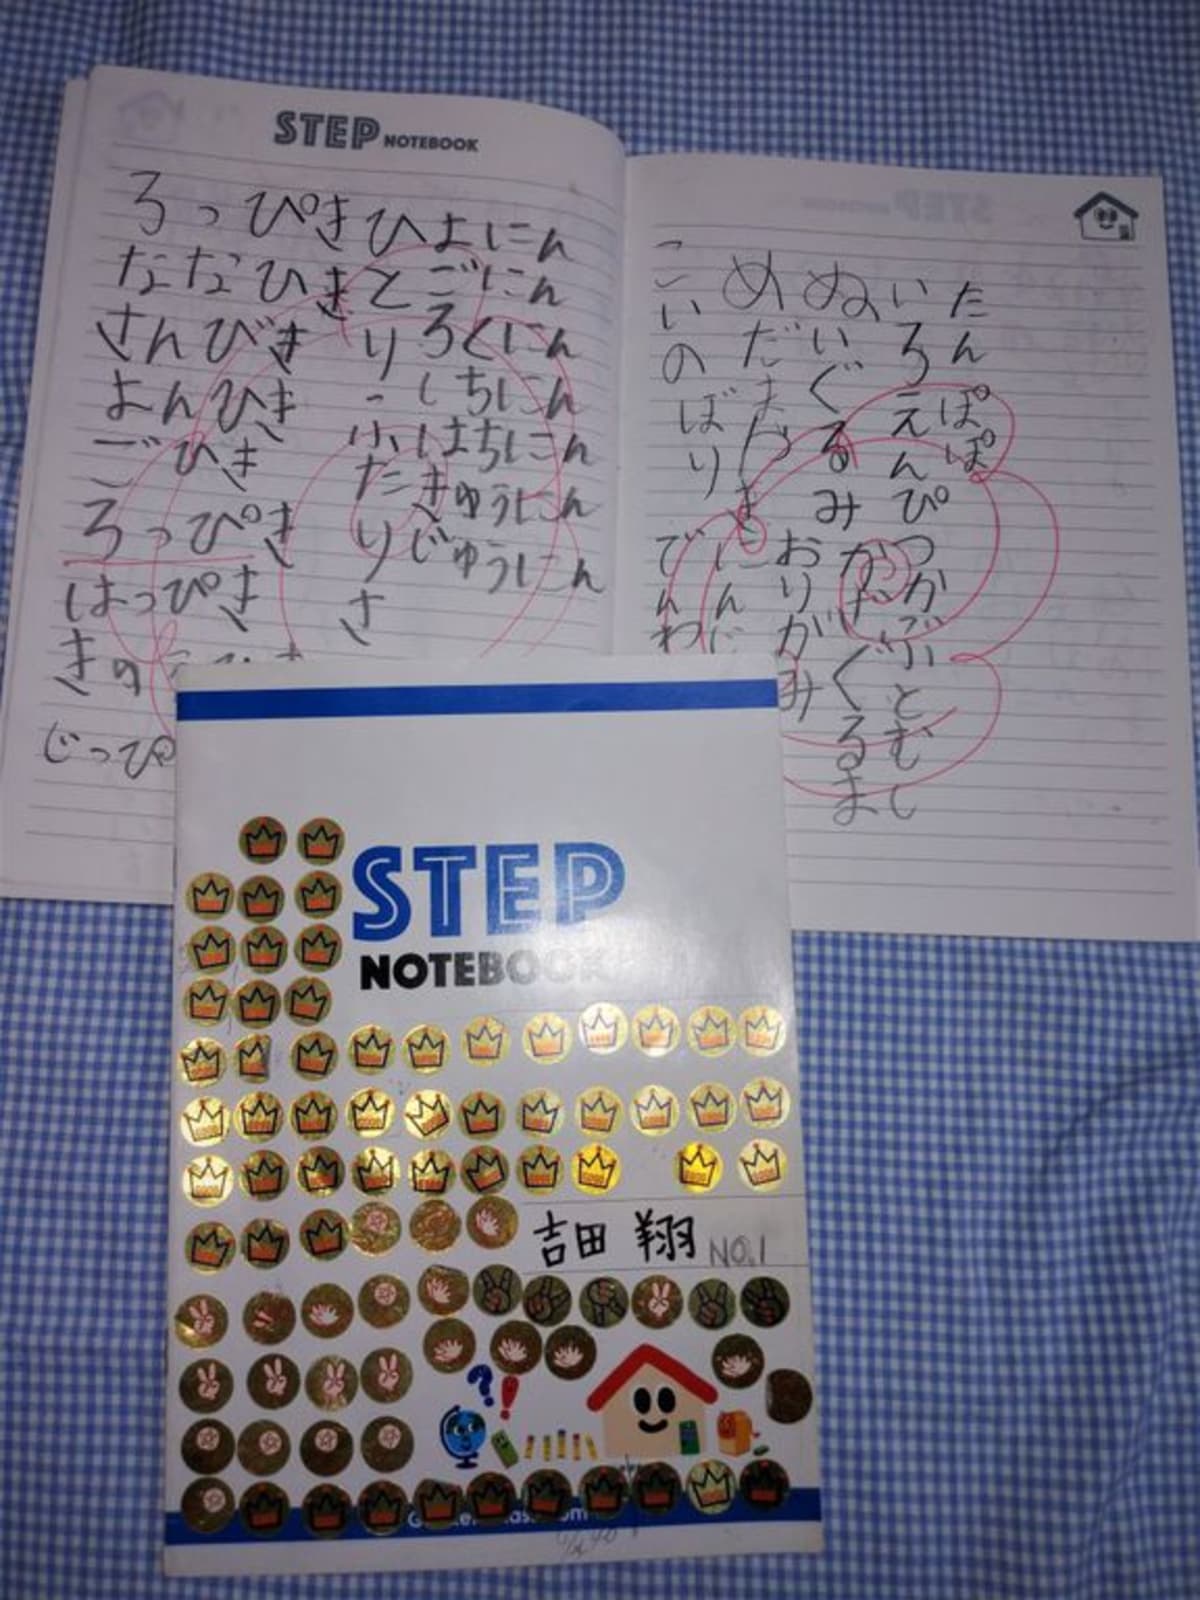 STEP NOTEBOOK
ろっぴき
ななひき
さんびき
よんひき
ごひき
ろっぴき
はっぴき
じっぴ
ひとり
ふたり
さ
よにん
ごにん
ろくにん
しちにん
はちにん
きゅうにん
じゅうにん
たんぽぽ
いろえんぴつ
かぶとむし
ぬいぐるみ
かだぐるま
めだまやき
おりがみ
こいのぼり
にんじ
でんわ
STEP
NOTEBOOK
吉田 翔 NO.1